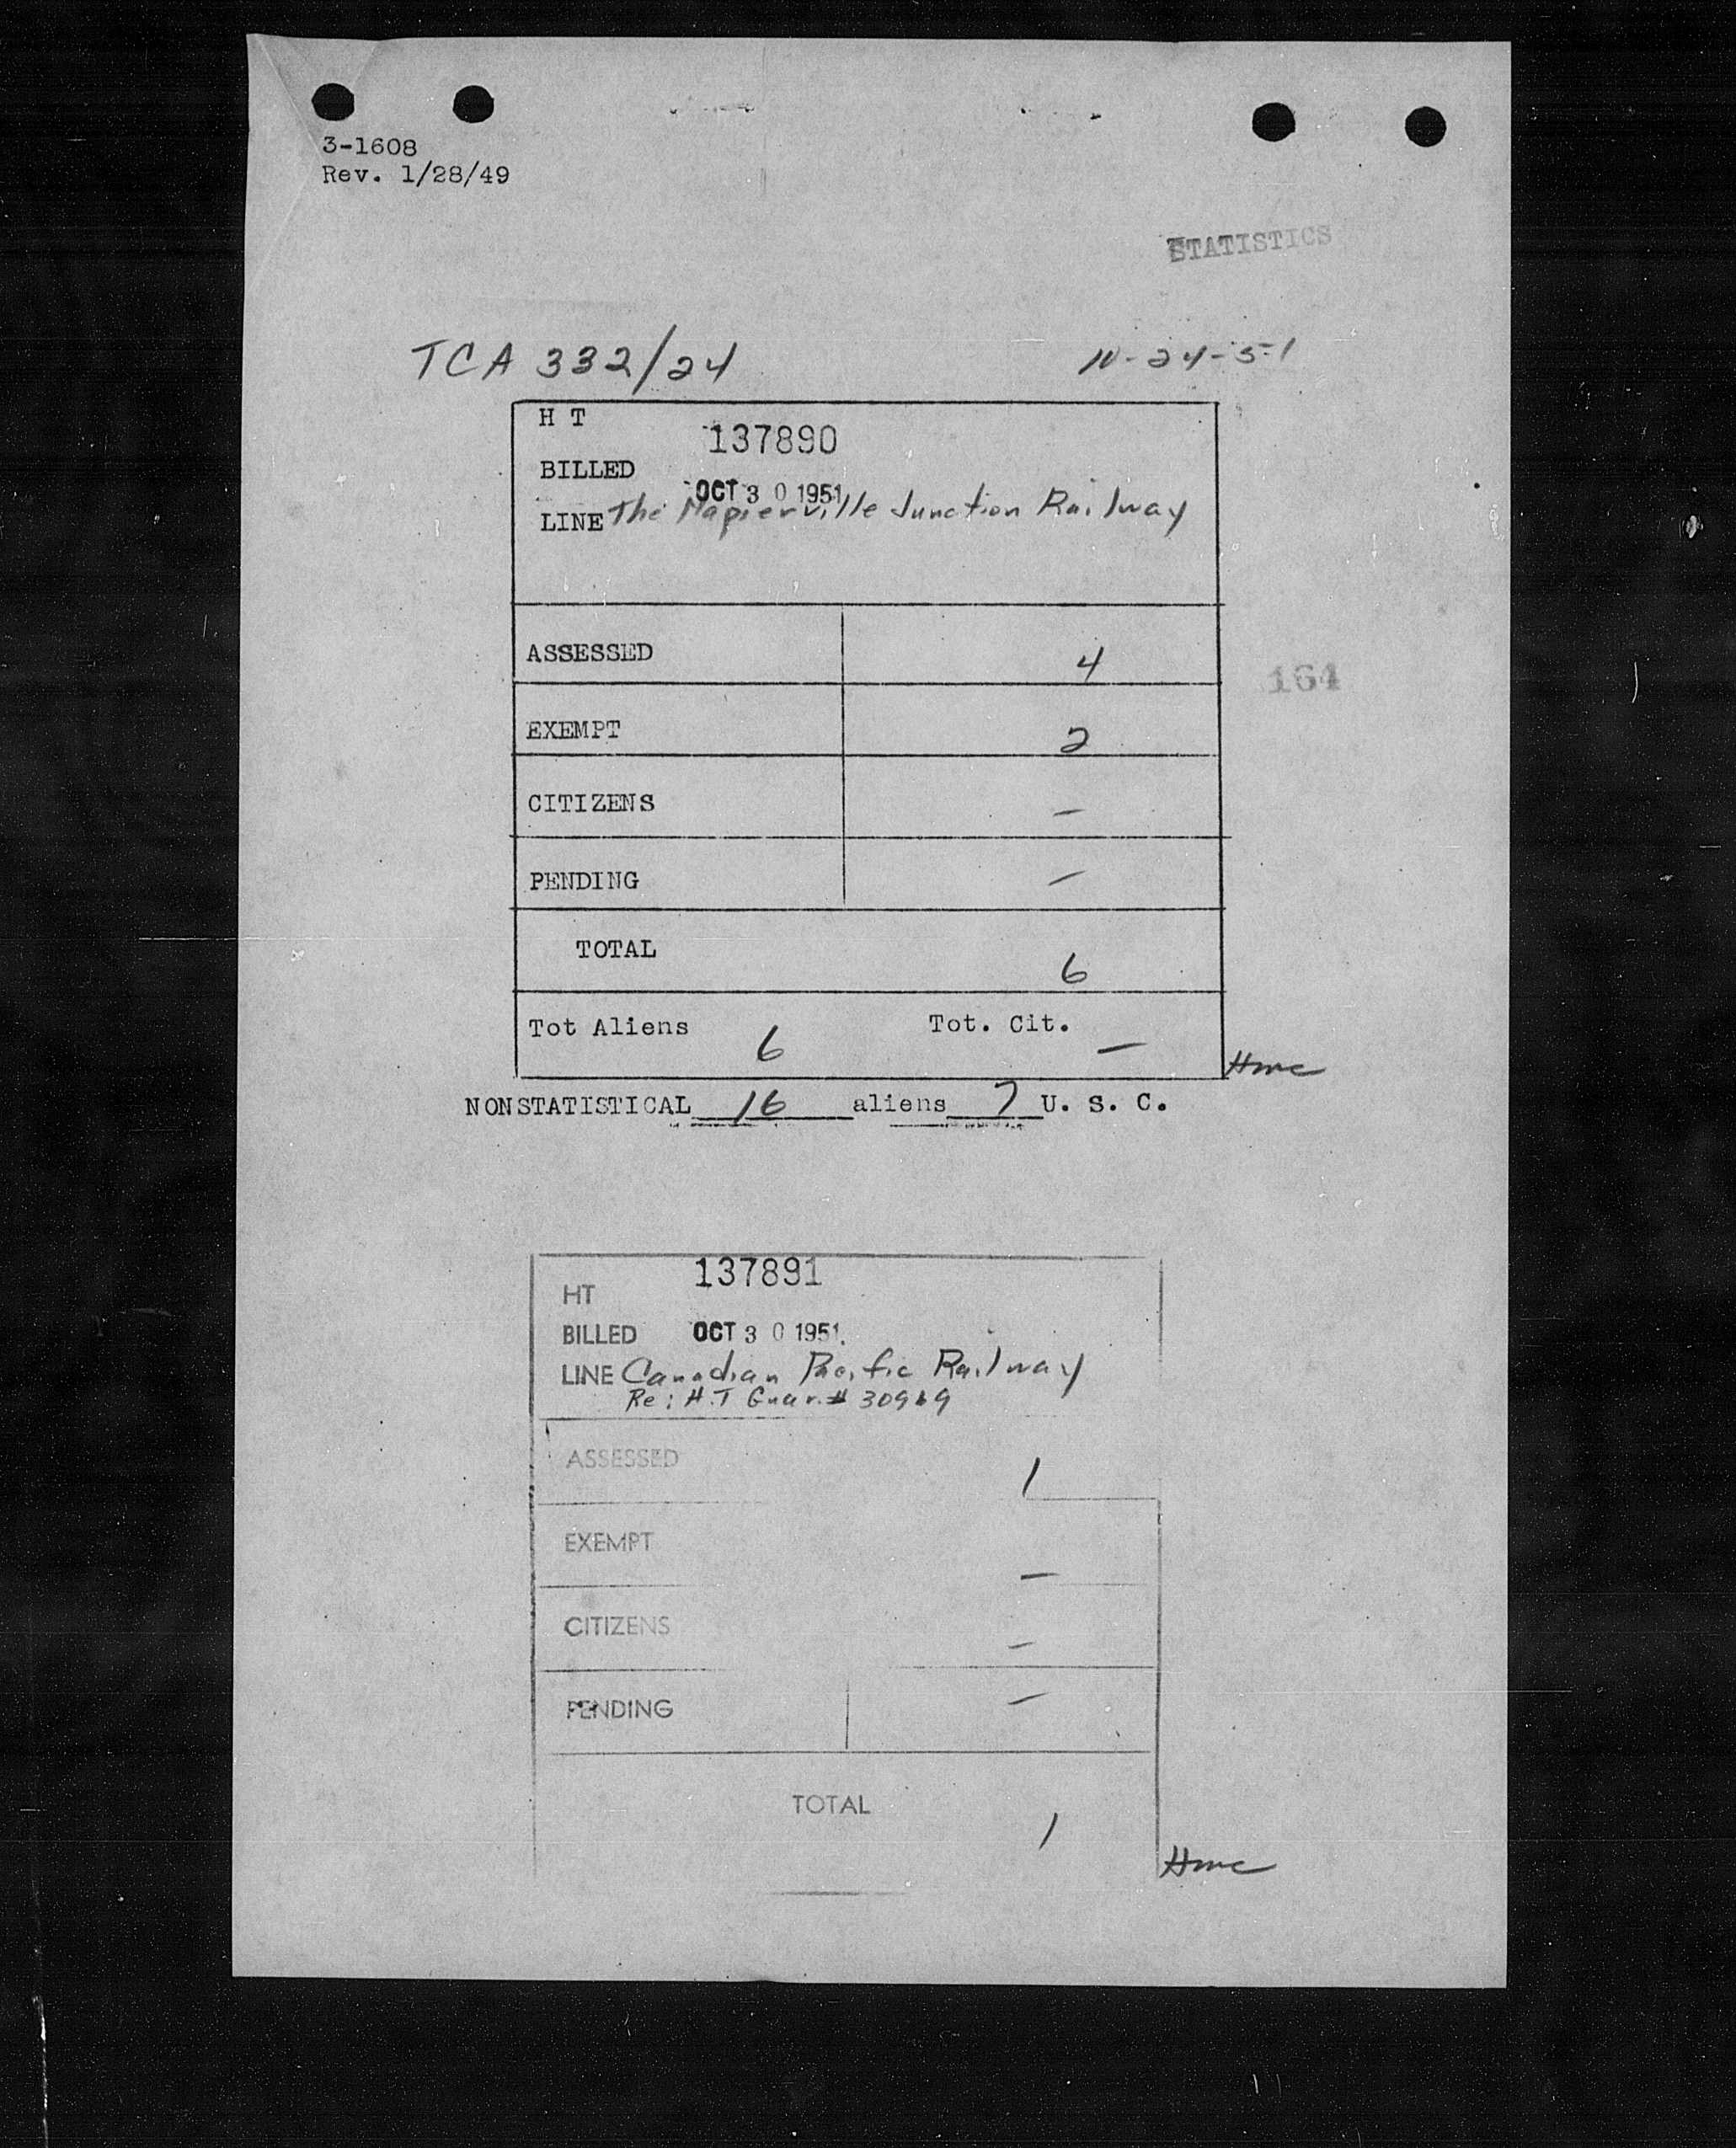 3-1608
Rev. 1/28/49
STATISTICS
TCA 332/24
10-24-51
H T
137890
BILLED
OCT 30 1951
LINE The Napierville Junction Railway
ASSESSED 4
164
EXEMPT 2
CITIZENS –
PENDING –
TOTAL 6
Tot Aliens 6 Tot. Cit. –
Hmc
NONSTATISTICAL 16 aliens 7 U. S. C.
137891
HT
BILLED OCT 30 1951
LINE Canadian Pacific Railway
Re: H.T Guar. # 30969
ASSESSED 1
EXEMPT –
CITIZENS –
PENDING –
TOTAL
1
Hmc